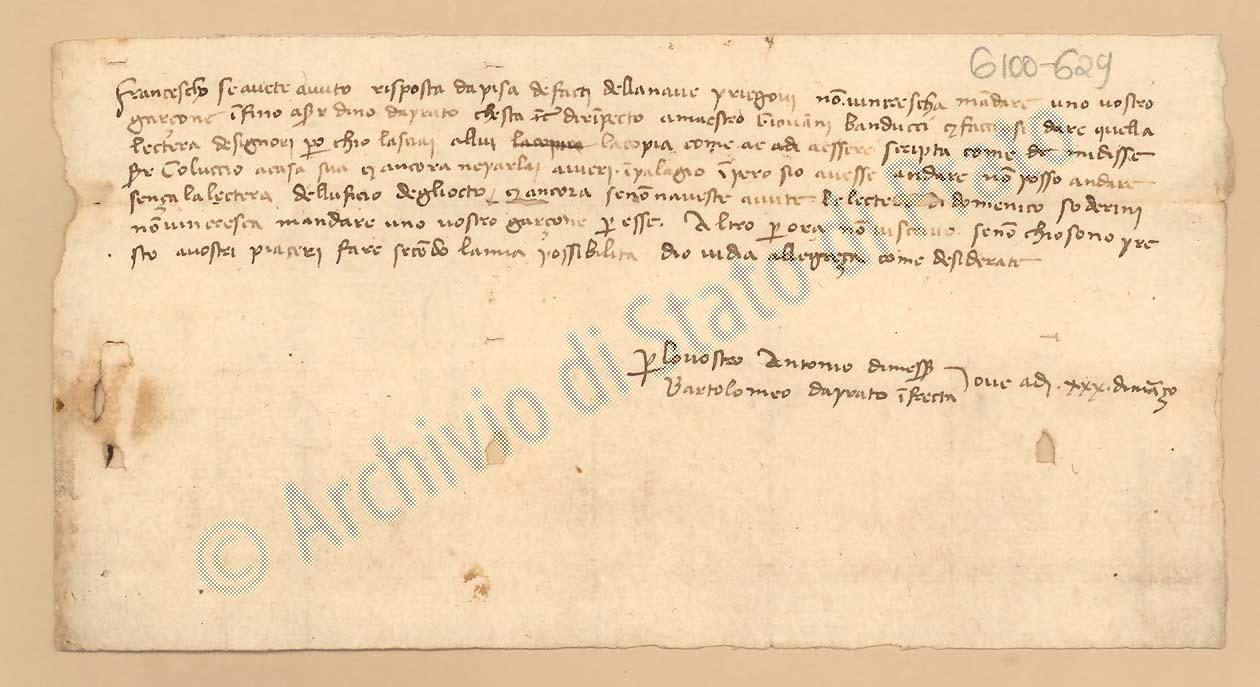 6100-629
Francescho se avete avuto risposta da pisa de facti della nave priegovi non vincrescha mandare uno vostro
garçone infino a Ser dino da prato che sta dirinpecto a maestro Giovanni Banducci et facci si dare quella
lectera de signori pero chio lasciai allui la copia come ae adi aessere scripta come mi disse
Ser Coluccio a casa sua et ancora ne parlai a in palagio in pero sio avesse andare non posso andare
sença la lectera dell uficio degliocto et ancora se non naveste avute le lectere di domenico soderini
non vincresca mandare uno vostro garçone per esse. Altro per ora non vi scrivo se non chio sono pre
sto a vostri piaceri fare secondo la mia possibilita dio vi dia allegreça come desiderate
per lo vostro Antonio di messer
Bartolomeo da prato in frecta
ove adi .xxx. di março
© Archivio di Stato di Prato